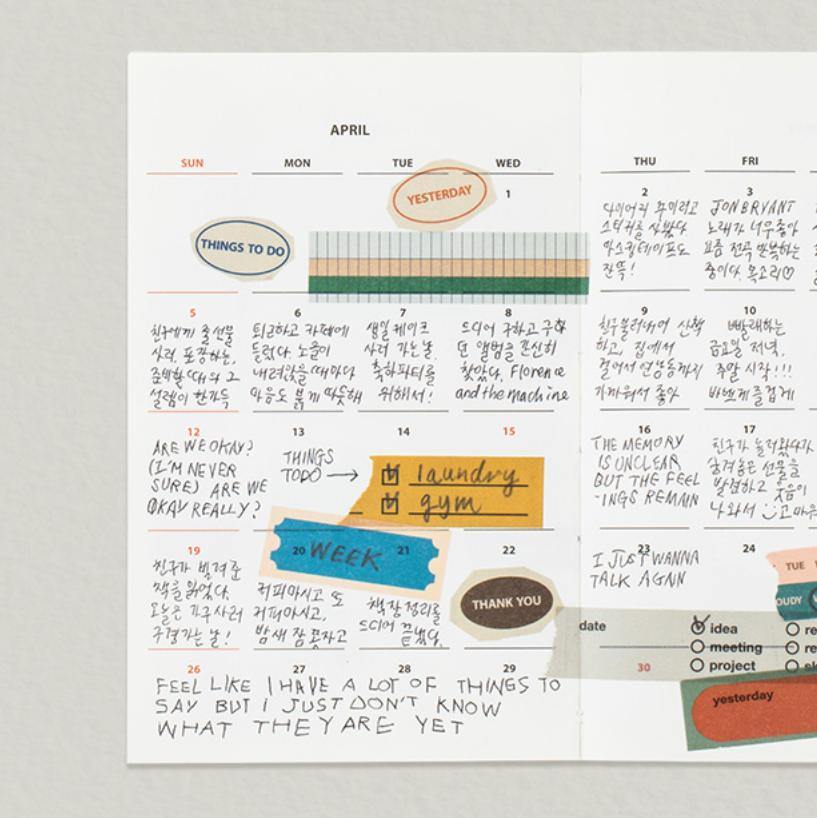 APRIL
SUN MON TUE WED THU FRI
YESTERDAY
1
2
3
THINGS TO DO
다이어리 꾸미려고
스티커를 샀다
마스킹테이프도
잔뜩!
JON BRYANT
노래가 너무좋아
요즘 전곡 반복하는
중이다. 목소리♡
5
6
7
8
9
10
친구에게 줄 선물
사러. 포장하는,
준비할 때와 그
설렘이 한가득
퇴근하고 카페에
들렀다. 노을이
내려앉을때마다
마음도 붉게 따뜻해
생일 케이크
사러 가는날.
축하파티를
위해서!
드디어 구하고 구하
던 앨범을 간신히
찾았다. Florence
and the machine
친구불러내어 산책
하고, 집에서
걸어서 연남동까지
가까워서 좋아
빨래하는
금요일 저녁,
주말 시작!!!
바쁘게 즐겁게
12
13
14
15
16
17
ARE WE OKAY?
(I'M NEVER
SURE) ARE WE
OKAY REALLY?
THINGS
TODO →
laundry
gym
THE MEMORY
IS UNCLEAR
BUT THE FEEL
-INGS REMAIN
친구가 놀러왔다가
숨겨놓은 선물을
발견하고 웃음이
나와서
19
20
WEEK
21
22
23
24
친구가 빌려준
책을 읽었다.
오늘은 가구 사러
구경가는 날!
커피마시고 또
커피마시고,
밤새 잠 못자고
책장정리를
드디어 끝냈다.
THANK YOU
I JUST WANNA
TALK AGNN
TUE
OUDY
date
idea
meeting
project
26
27
28
29
30
FEEL LIKE I HAVE A LOT OF THINGS TO
SAY BUT I JUST DON'T KNOW
WHAT THEY ARE YET
yesterday